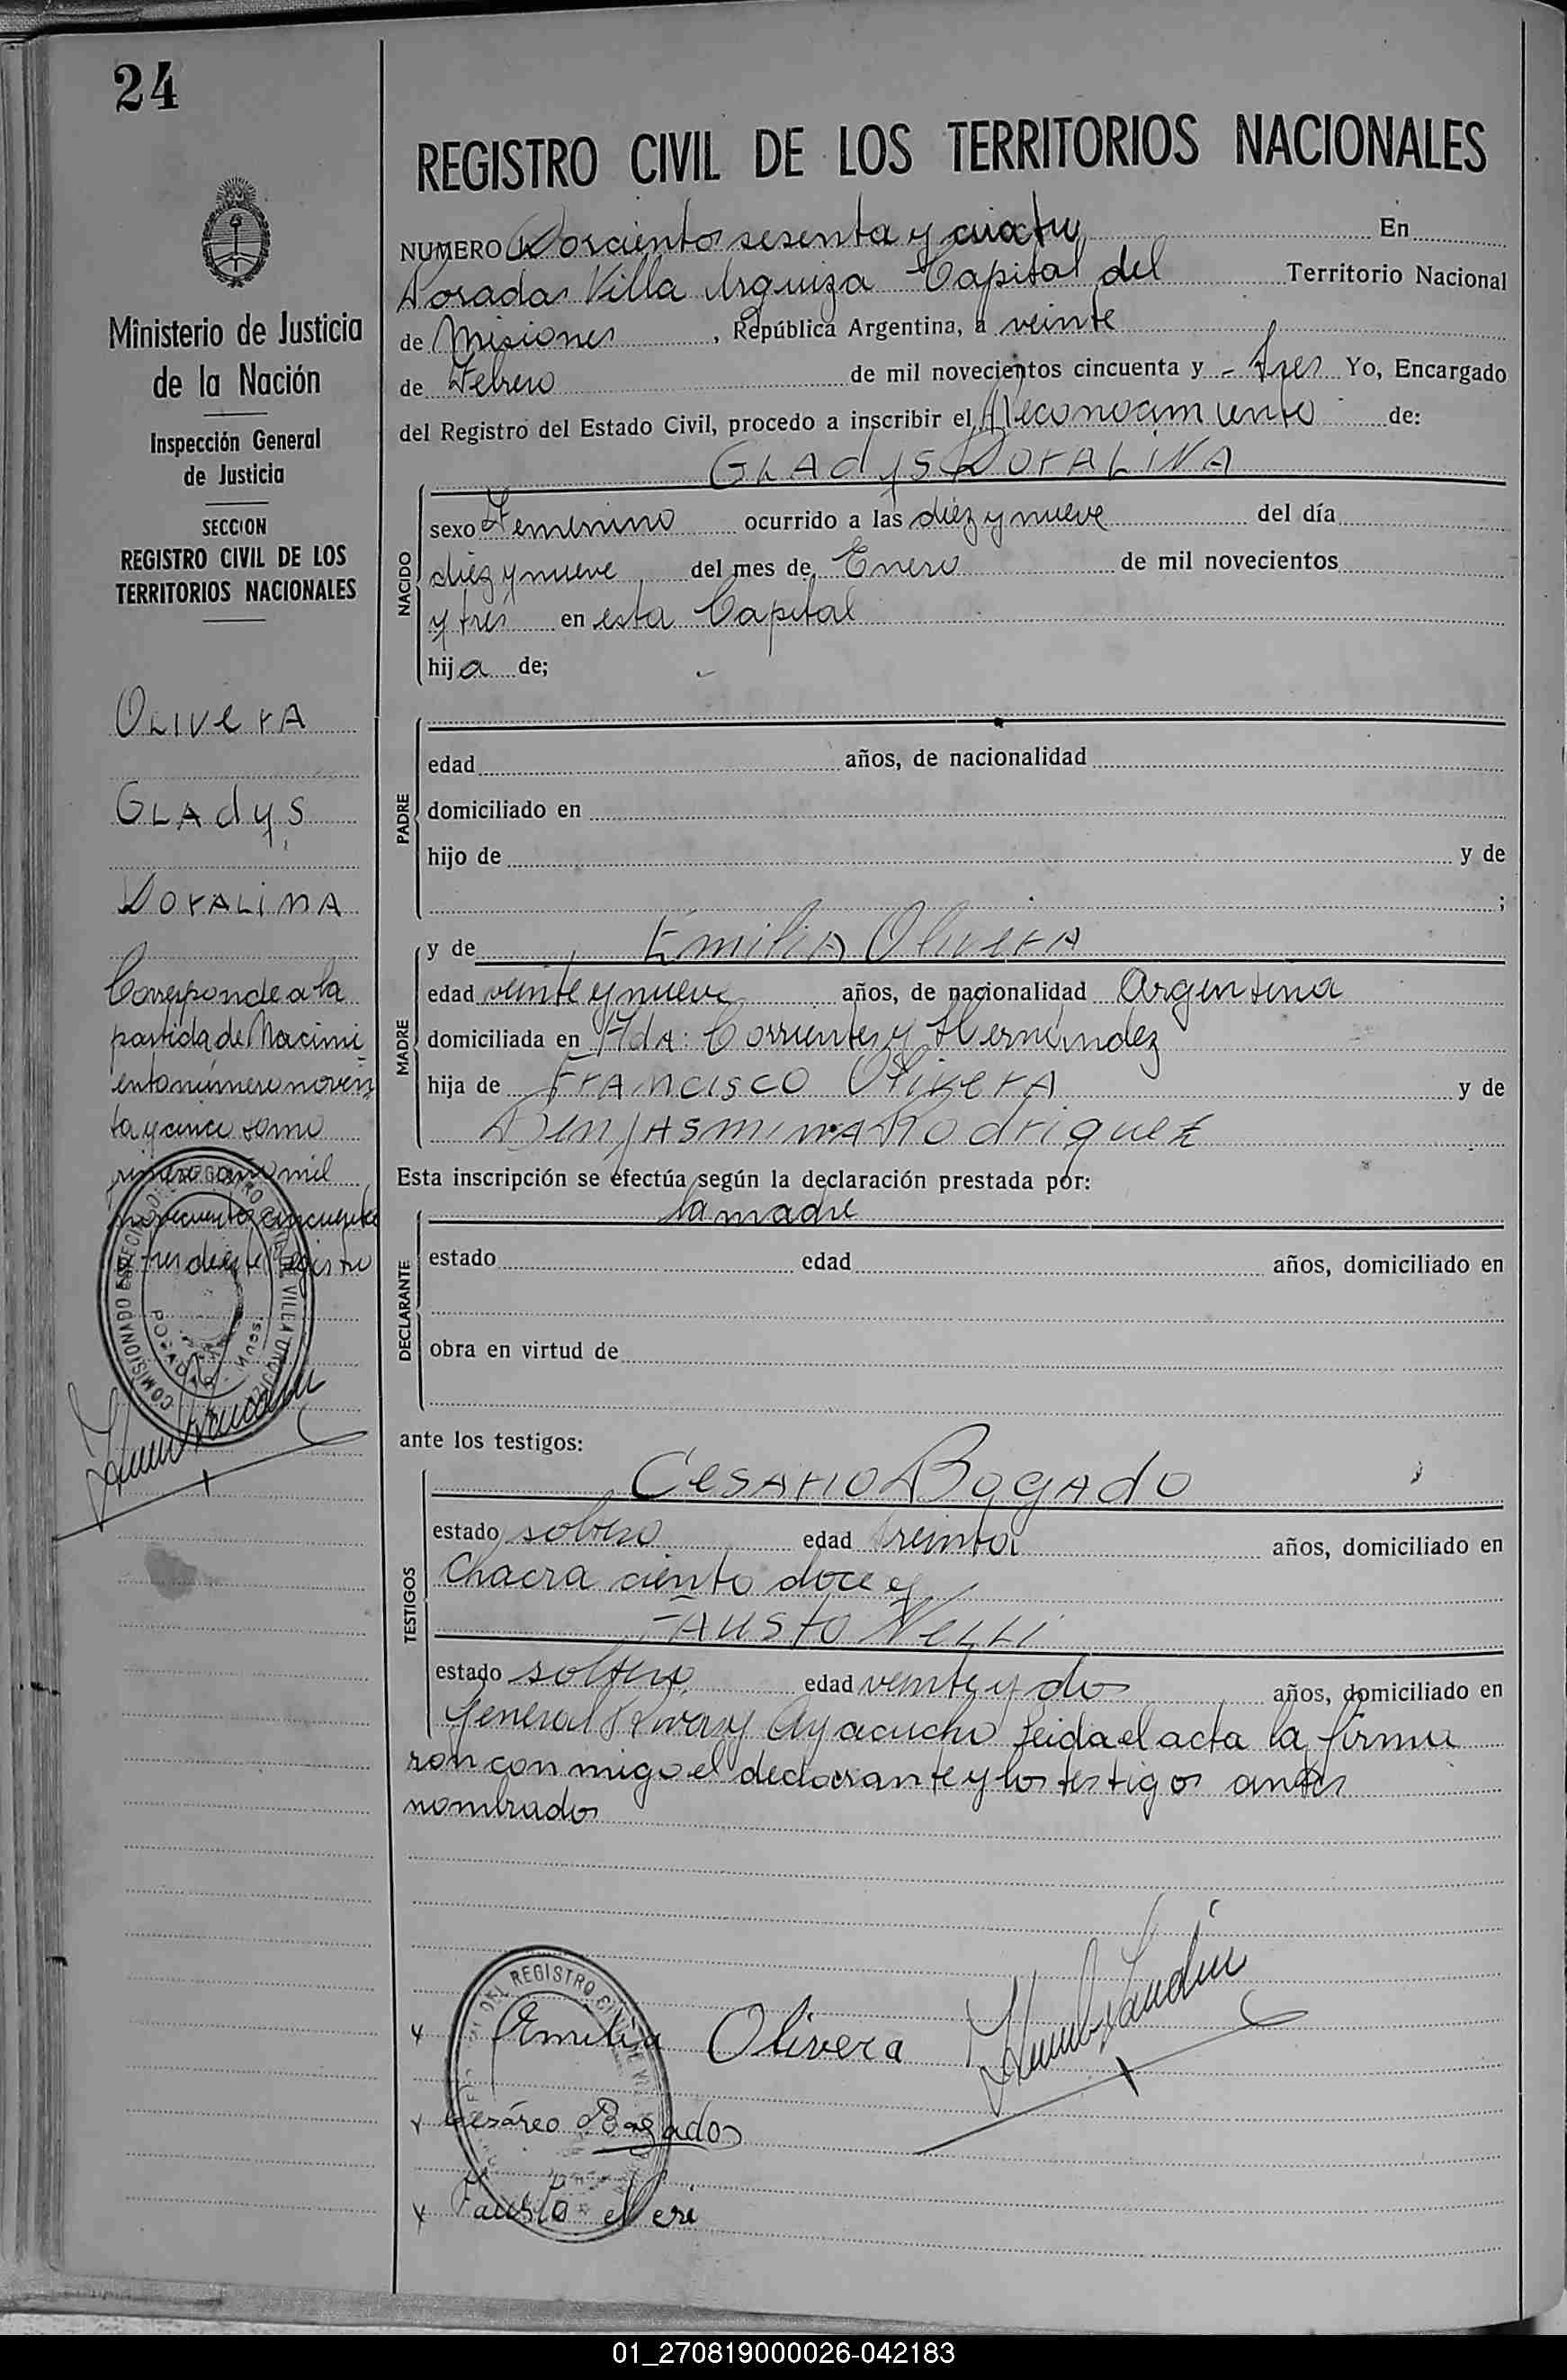 24
REGISTRO CIVIL DE LOS TERRITORIOS NACIONALES
NUMERO Doscientos sesenta y cuatro En
Posadas Villa Urquiza Capital del Territorio Nacional
de Misiones, República Argentina, a veinte
de Febrero de mil novecientos cincuenta y - tres Yo, Encargado
del Registro del Estado Civil, procedo a inscribir el Reconocimiento de:
GLAdyS DorALINA
NACIDO
sexo Femenino ocurrido a las diez y nueve del día
diez y nueve del mes de Enero de mil novecientos
y tres en esta Capital
hija de;
PADRE
edad años, de nacionalidad
domiciliado en
hijo de y de
;
MADRE
y de EmiliA OliverA
edad veinte y nueve años, de nacionalidad Argentina
domiciliada en Avda: Corrientes y Hernández
hija de FrAncisco OliverA y de
BenjAsminA Rodriguez
Esta inscripción se efectúa según la declaración prestada por:
la madre
DECLARANTE
estado edad años, domiciliado en
obra en virtud de
ante los testigos:
TESTIGOS
CesArio BogAdo
estado soltero edad treinta años, domiciliado en
Chacra ciento doce y
FAusto NeLLi
estado soltero edad veinte y dos años, domiciliado en
General y Ayacucho Leida el acta la firma
ron con migo el declarante y los testigos antes
nombrados
Emilia Olivera
Cesáreo Bogado
Fausto Neri
DEL REGISTRO CIVIL
Ministerio de Justicia
de la Nación
Inspección General
de Justicia
SECCION
REGISTRO CIVIL DE LOS
TERRITORIOS NACIONALES
OLIVerA
GLAdyS
DorALinA
Corresponde a la
partida de Nacimi
ento número noven
ta y cinco tomo
primero año mil
novecientos cincuenta
y tres de este Registro
COMISIONADO ESPECIAL DEL REGISTRO CIVIL DE VILLA URQUIZA
POSADAS - Mnes.
01_270819000026-042183